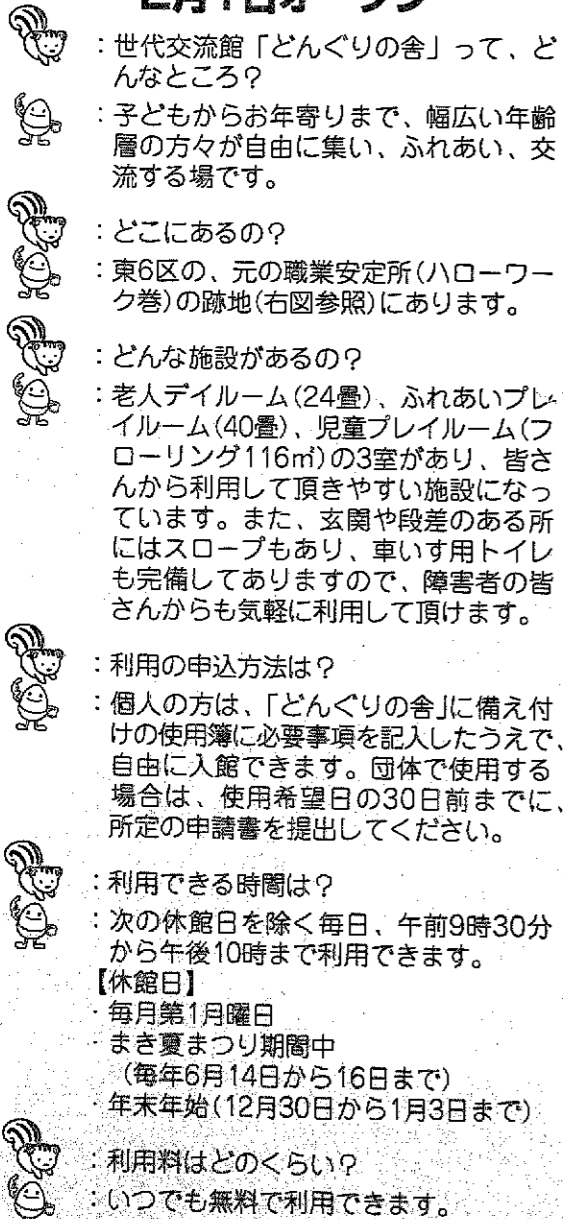 ：世代交流館「どんぐりの舎」って、ど
んなところ？
：子どもからお年寄りまで、幅広い年齢
層の方々が自由に集い、ふれあい、交
流する場です。
：どこにあるの？
：東6区の、元の職業安定所(ハローワー
ク巻)の跡地(右図参照)にあります。
：どんな施設があるの？
：老人デイルーム(24畳)、ふれあいプレ
イルーム(40畳)、児童プレイルーム(フ
ローリング116㎡)の3室があり、皆さ
んから利用して頂きやすい施設になっ
ています。また、玄関や段差のある所
にはスロープもあり、車いす用トイレ
も完備してありますので、障害者の皆
さんからも気軽に利用して頂けます。
：利用の申込方法は？
：個人の方は、「どんぐりの舎」に備え付
けの使用簿に必要事項を記入したうえで、
自由に入館できます。団体で使用する
場合は、使用希望日の30日前までに、
所定の申請書を提出してください。
：利用できる時間は？
：次の休館日を除く毎日、午前9時30分
から午後10時まで利用できます。
【休館日】
・毎月第1月曜日
・まき夏まつり期間中
（毎年6月14日から16日まで）
・年末年始(12月30日から1月3日まで)
：利用料はどのくらい？
：いつでも無料で利用できます。